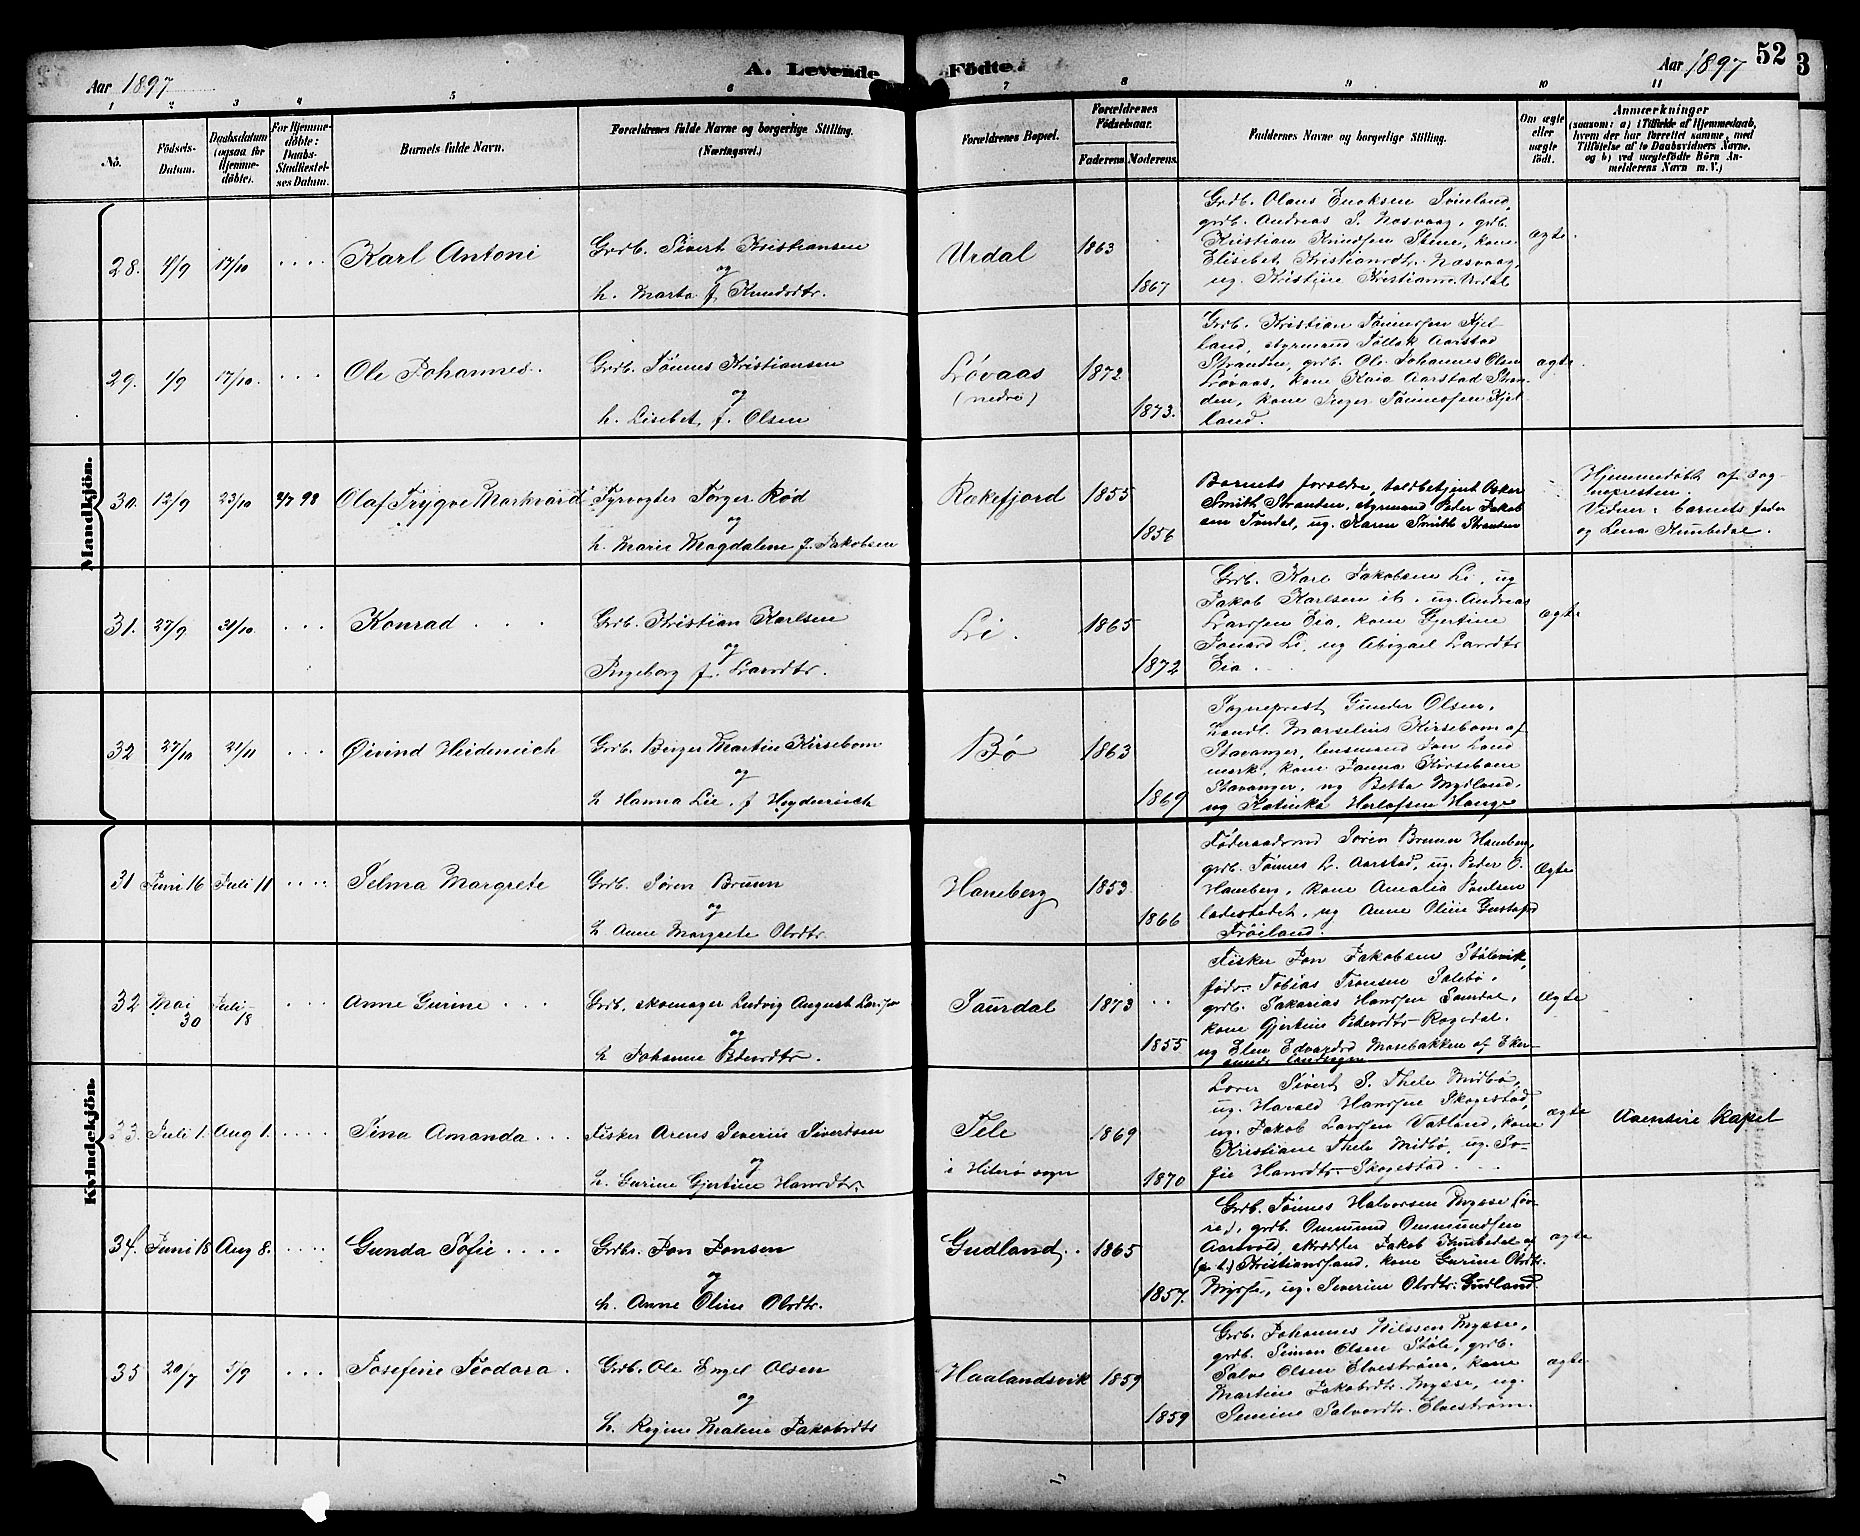 Aar 1897
A. Levende Födte.
Aar 1897
52
3
1 2 3 4 5 6 7 8 9 10 11
No.
Födsels-
Datum.
Daabsdatum
(ogsaa for
Hjemme-
döbte).
For Hjemme-
döbte:
Daabs-
Stadfæstel-
ses Datum.
Barnets fulde Navn.
Forældrenes fulde Navne og borgerlige Stilling.
(Næringsvei.)
Forældrenes Bopæl.
Forældrenes
Födselsaar.
Faderens. Moderens.
Faddernes Navne og borgerlige Stilling.
Om ægte
eller
uægte
födt.
Anmærkninger
(saasom: a) i Tilfælde af Hjemmedaab,
hvem der har forrettet samme, med
Tilföielse af to Daabsvidners Navne.
og b) ved uægtefödte Börn An-
melderens Navn m. V.)
Mandkjön.
28. 4/9 17/10 Karl Antoni
Grdb. Sivert Kristiansen
og
h. Marta f. Knudsdtr.
Urdal 1863
1867
Grdb. Olaus Enoksen Tveitland,
grdb. Andreas S. Næsvaag, grdb.
Kristian Knudsen Stene, kone
Elisebet Kristiansdtr. Næsvaag,
ug. Kristine Kristiansen Urdal
ægte
29. 1/9 17/10. Ole Johannes.
Grdb. Tönnes Kristiansen
og
h. Lisebet f. Olsen
Løvaas
(nedre)
1872
1873.
Grdb. Kristian Tönnessen Kjel-
land, styrmand Tollak Aarstad
Stranden, grdb. Ole Johannes Olsen
Løvaas, kone Kaia Aarstad Stran-
den, kone Inger Tönnessen Kjel-
land.
ægte
30. 12/9 23/10 3/7 98 Olaf Trygve Markvard
Fyrvogter Torger Rød
og
h. Marie Magdalene f. Jakobsen
Rækefjord 1855
1856
Barnets forældre, toldbetjent Oskar
Smith Stranden, styrmand Peder Jakob
sen Sundal, ug. Karen Smith Stranden
Hjemmedøbt af sog
nepresten.
Vidner: barnets fader
og Lena Hunbedal.
31. 27/9 31/10. Konrad
Grdb. Kristian Karlsen
og
Ingeborg f. Larsdtr.
Li. 1865
1872
Grdb. Karl Jakobsen Li, ug
Jakob Karlsen ib., ug. Andreas
Larssen Eia, kone Gjertine
Jonasd Li, ug Abigael Larsdtr
Eia
ægte
32 27/10 21/11 Øivind Heidenreich
Grdb. Berger Martin Kirsebom
og
h Hanna Lie, f Heydenreich
Bø 1863
1869
Sogneprest Gunder Olsen,
Handl. Marselius Kirsebom af
Stavanger, lensmand Jon Lund
mark, kone Janna Kirsebom
Stavanger, ug Betta Mydland,
ug Katinka Herlofsen Hauge
Kvindekjön.
31 Juni 16 Juli 11 Selma Margrete
Grdb. Søren Bruun
og
h Anne Margrete Olsdtr.
Haneberg 1853
1866
Føderaadsmd Søren Bruun Haneberg,
grdb. Tönnes L. Aarstad, ug. Peder O.
Haneberg, kone Amalia Poulsen
ladestedet, ug Anne Oline Gustafsd
Frøiland.
Ægte
32 Mai
30
Juli
18
Anne Gurine
Grdb. skomager Ludvig August Larssen
og
h Johanne Pedersdtr.
Saurdal 1873
1855
Fisker Jon Jakobsen Stølsvik,
fødr. Tobias Tronsen Salebø,
grdb. Sakarias Hanssen Saurdal,
kone Gjertine Petersdtr Rægedal,
ug Elen Edvardsd Mosebakken af Eker-
sunds landsogn
Ægte
33. Juli 1. Aug 1. Sina Amanda
Fisker Arens Severin Sivertsen
og
h. Gurine Gjertine Hansdtr.
Tele
i Hiterø sogn
1869
1870
Sivert S. Thele Midbø,
ug. Harald Hanssen Skogestad,
ug. Jakob Larssen Vatland, kone
Kristiane Thele Midbø, ug. So-
fie Hansdtr Skogestad
ægte
Aaensire Kapel
34. Juni 18 Aug 8. Gunda Sofie
Grdbr. Jon Jonsen
og
h. Anne Oline Olsdtr.
Gudland 1865
1857.
Grdb. Tönnes Halvorsen Mysse (øv-
re), grdb. Ommund Ommundsen
Aarrold, skrædder Jakob Hunbedal af
Kristianssand, kone Gurine Olsdtr.
Mysse, ug. Severine Olsdtr. Gudland
ægte
35 20/7 5/9 Josefine Teodora
Grdb. Ole Engel Olsen
og
h. Regine Malene Jakobsdtr
Haalandsvik 1859
1859
Grdb. Johannes Nilssen Mysse,
grdb. Simon Olsen Støle, grdb.
Salve Olsen Elvestrøm, kone
Martine Jakobsdtr. Mysse, ug.
Semine Salvesdtr. Elvestrøm.
ægte